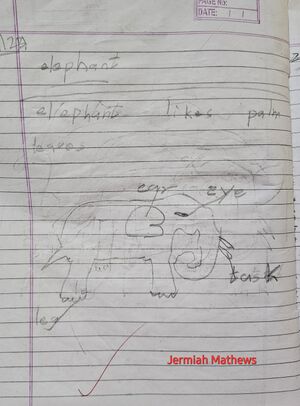 PAGE NO:
DATE: / /
elephant
elephant likes palm
leaves
ear eye
tusk
leg
Jermiah Mathews